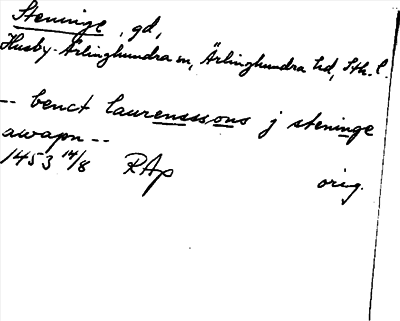 Steninge, gd,
Husby-Ärlinghundra sn, Ärlinghundra hd, Sth. l.
-- benct laurenssons j steninge
awapn --
1453 14/8 RAp orig.